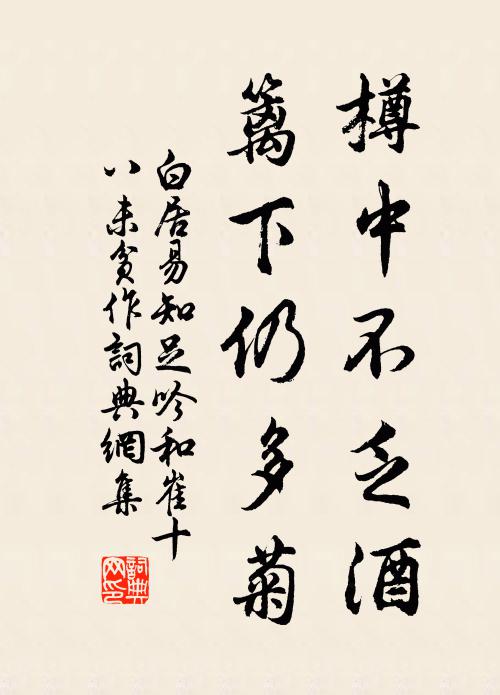 樽中不乏酒
篱下仍多菊
白居易知足吟和崔十
八未貧作詞典網集
詞典網印